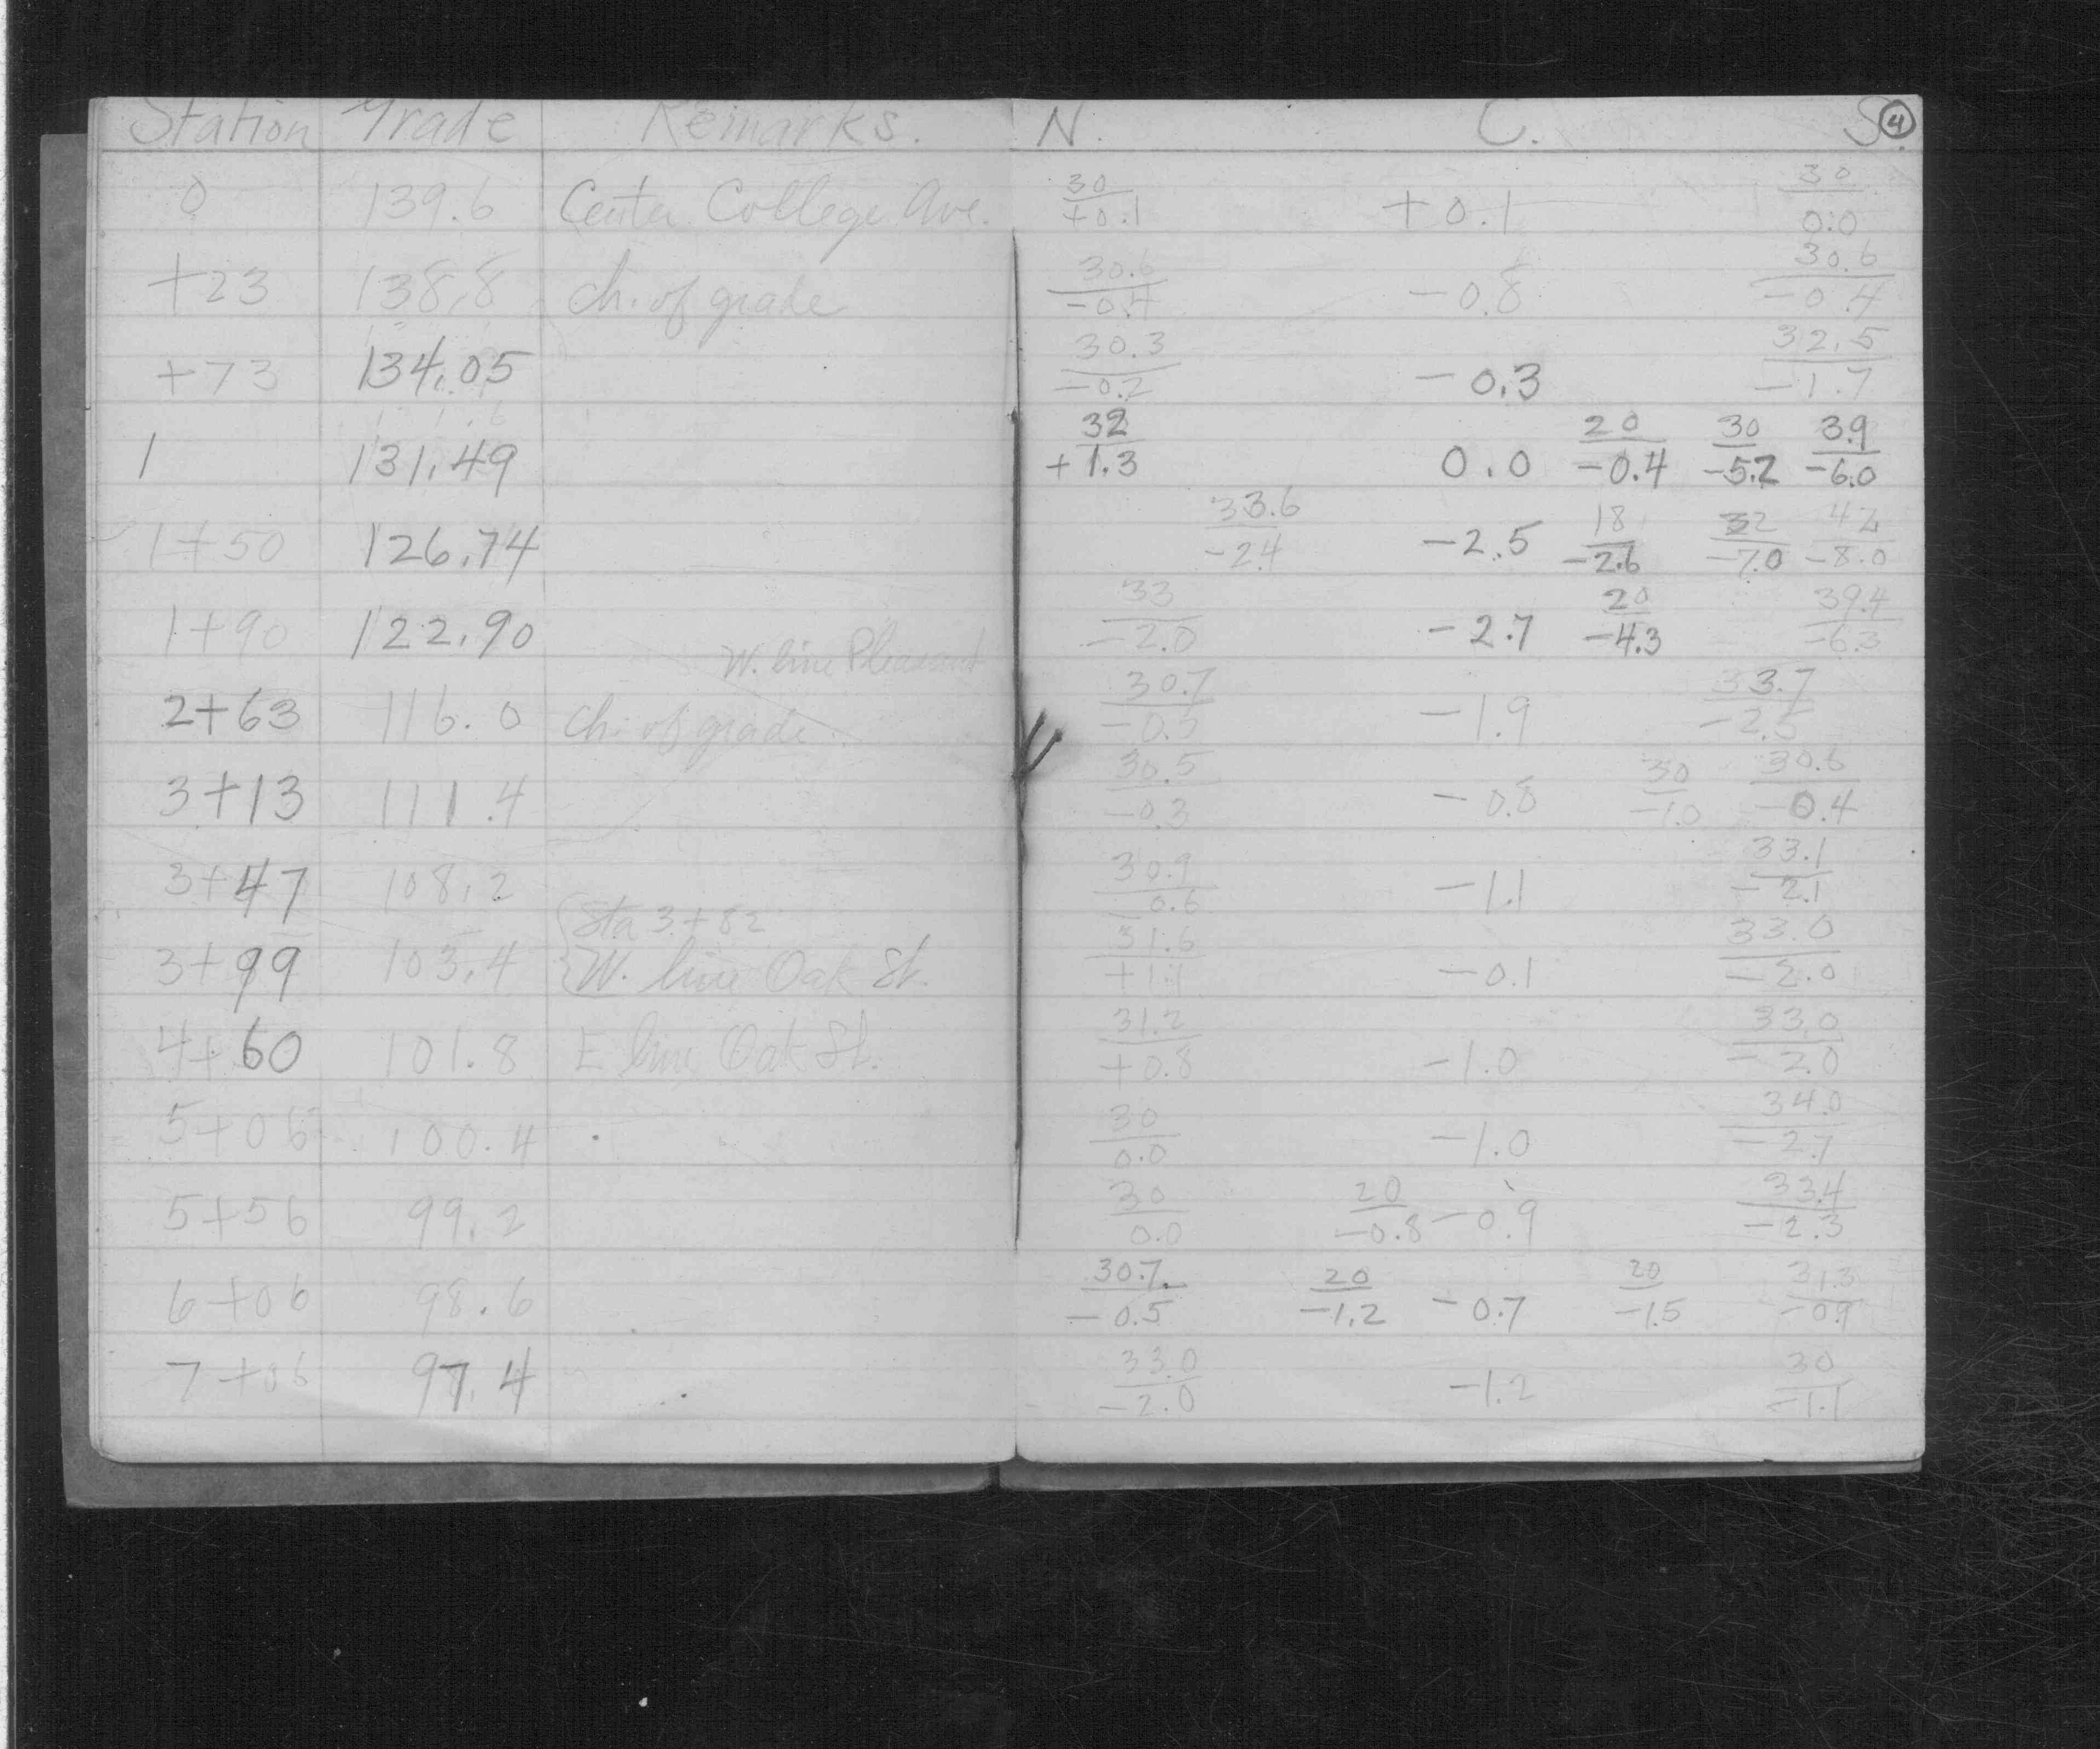 Station Grade Remarks. N. C. S. 4
0 139.6 Center College Ave. 30/+0.1 +0.1 30/0.0
+23 138.8 ch. of grade 30.6/-0.4 -0.8 30.6/-0.4
+73 134.05 30.3/-0.2 -0.3 32.5/-1.7
1 131.49 32/+1.3 0.0 20/-0.4 30/-5.2 39/-6.0
1+50 126.74 33.6/-2.4 -2.5 18/-2.6 32/-7.0 42/-8.0
1+90 122.90 33/-2.0 -2.7 20/-4.3 39.4/-6.3
W. line Pleasant
2+63 116.0 ch. of grade 30.7/-0.5 -1.9 33.7/-2.5
3+13 111.4 30.5/-0.3 -0.8 30/-1.0 30.6/-0.4
3+47 108.2 30.9/-0.6 -1.1 33.1/-2.1
Sta 3+82
3+99 103.4 W. line Oak St. 31.6/+1.1 -0.1 33.0/-2.0
4+60 101.8 E line Oak St. 31.2/+0.8 -1.0 33.0/-2.0
5+06 100.4 30/0.0 -1.0 34.0/-2.7
5+56 99.2 30/0.0 20/-0.8 -0.9 33.4/-2.3
6+06 98.6 30.7/-0.5 20/-1.2 -0.7 20/-1.5 31.3/-0.9
7+06 97.4 33.0/-2.0 -1.2 30/-1.1